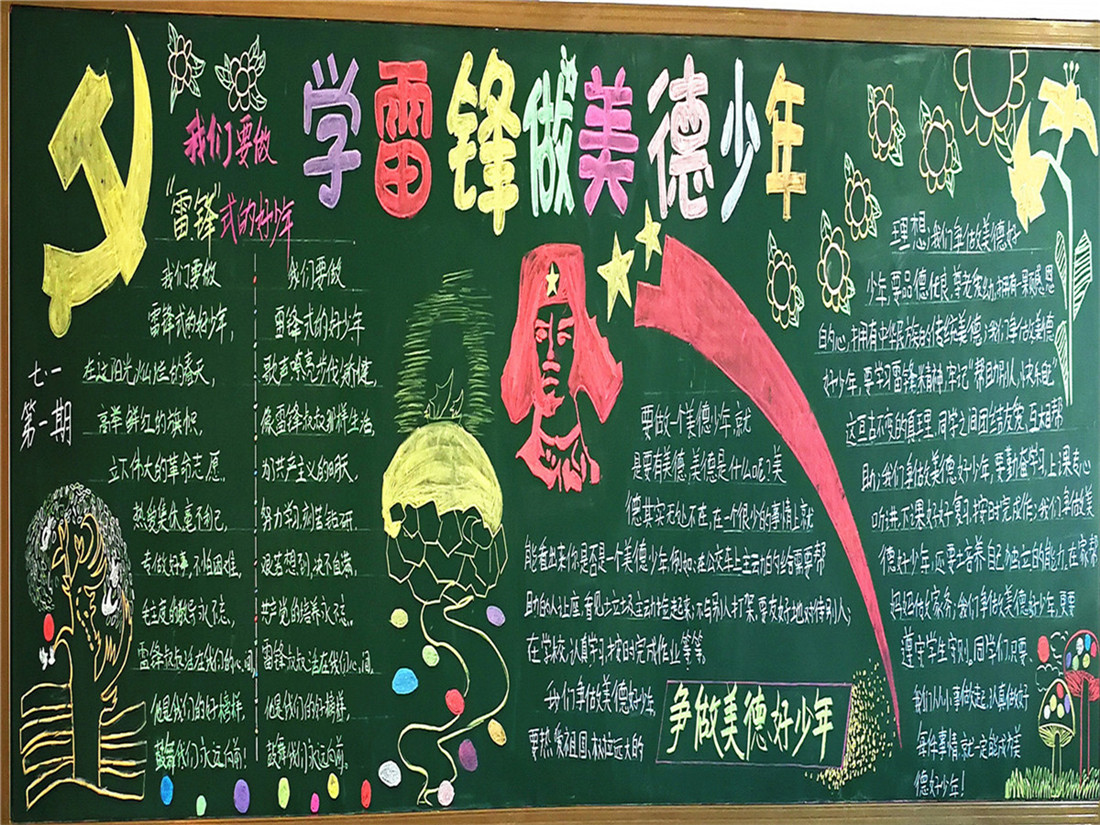 学雷锋做美德少年
我们要做
"雷锋"式的好少年
七·一
第一期
我们要做
雷锋式的好少年,
在这阳光灿烂的春天,
高举鲜红的旗帜
立下伟大的革命志愿。
热爱集体重不利己,
专做好事,不怕困难。
毛主席的教导永不忘,
雷锋叔叔活在我们的心间
他是我们的好榜样,
鼓舞我们永远向前!
我们要做
雷锋式的好少年
歌声嘹亮步伐矫健,
像雷锋叔叔那样生活,
为共产主义的明天,
努力学习刻苦钻研.
艰苦想到,决不自满。
共产党的培养永不忘。
雷锋叔叔活在我们心间
他是我们的好榜样,
鼓舞我们永远向前。
要做一个美德少年就
是要有美德,美德是什么呢?美
德其实无处不在,在一个很小的事情上就
能看出来你是否是一个美德少年例如:在公交车上主动的给需要帮
助的人让座,看见垃圾主动捡起来,不与别人打架,要友好地对待别人;
在学校,认真学习,按时完成作业等等。
我们争做美德好少年,
要热爱祖国,树立远大的
争做美德好少年
理想;我们争做美德好
少年,要品德优良,尊老爱幼,拥有一颗感恩
的心,拥有中华民族的传统美德;我们争做美德
好少年,要学习雷锋精神,牢记"帮助别人,快乐自己"
这亘古不变的真理,同学之间团结友爱,互相帮
助;我们争做美德好少年,要勤奋学习,上课专心
听讲,下课好好复习,按时完成作;我们争做美
德好少年,还要培养自己独立的能力,在家帮
妈妈做家务;我们争做美德好少年,更要
遵守学生守则。同学们,只要
我们从小事做起,认真做好
每件事情,就一定能成美
德好少年!